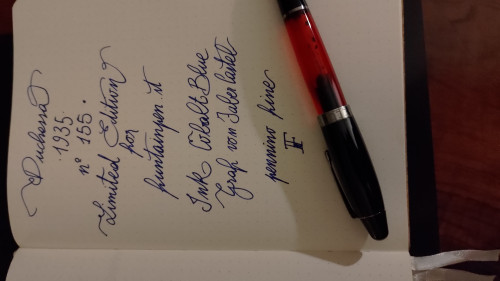 Duchessa
1935
n° 155.
Limited Edition
for
puntaspen.it
Ink Cobalt Blue
Graf von Faber Castel
pennino fine
F